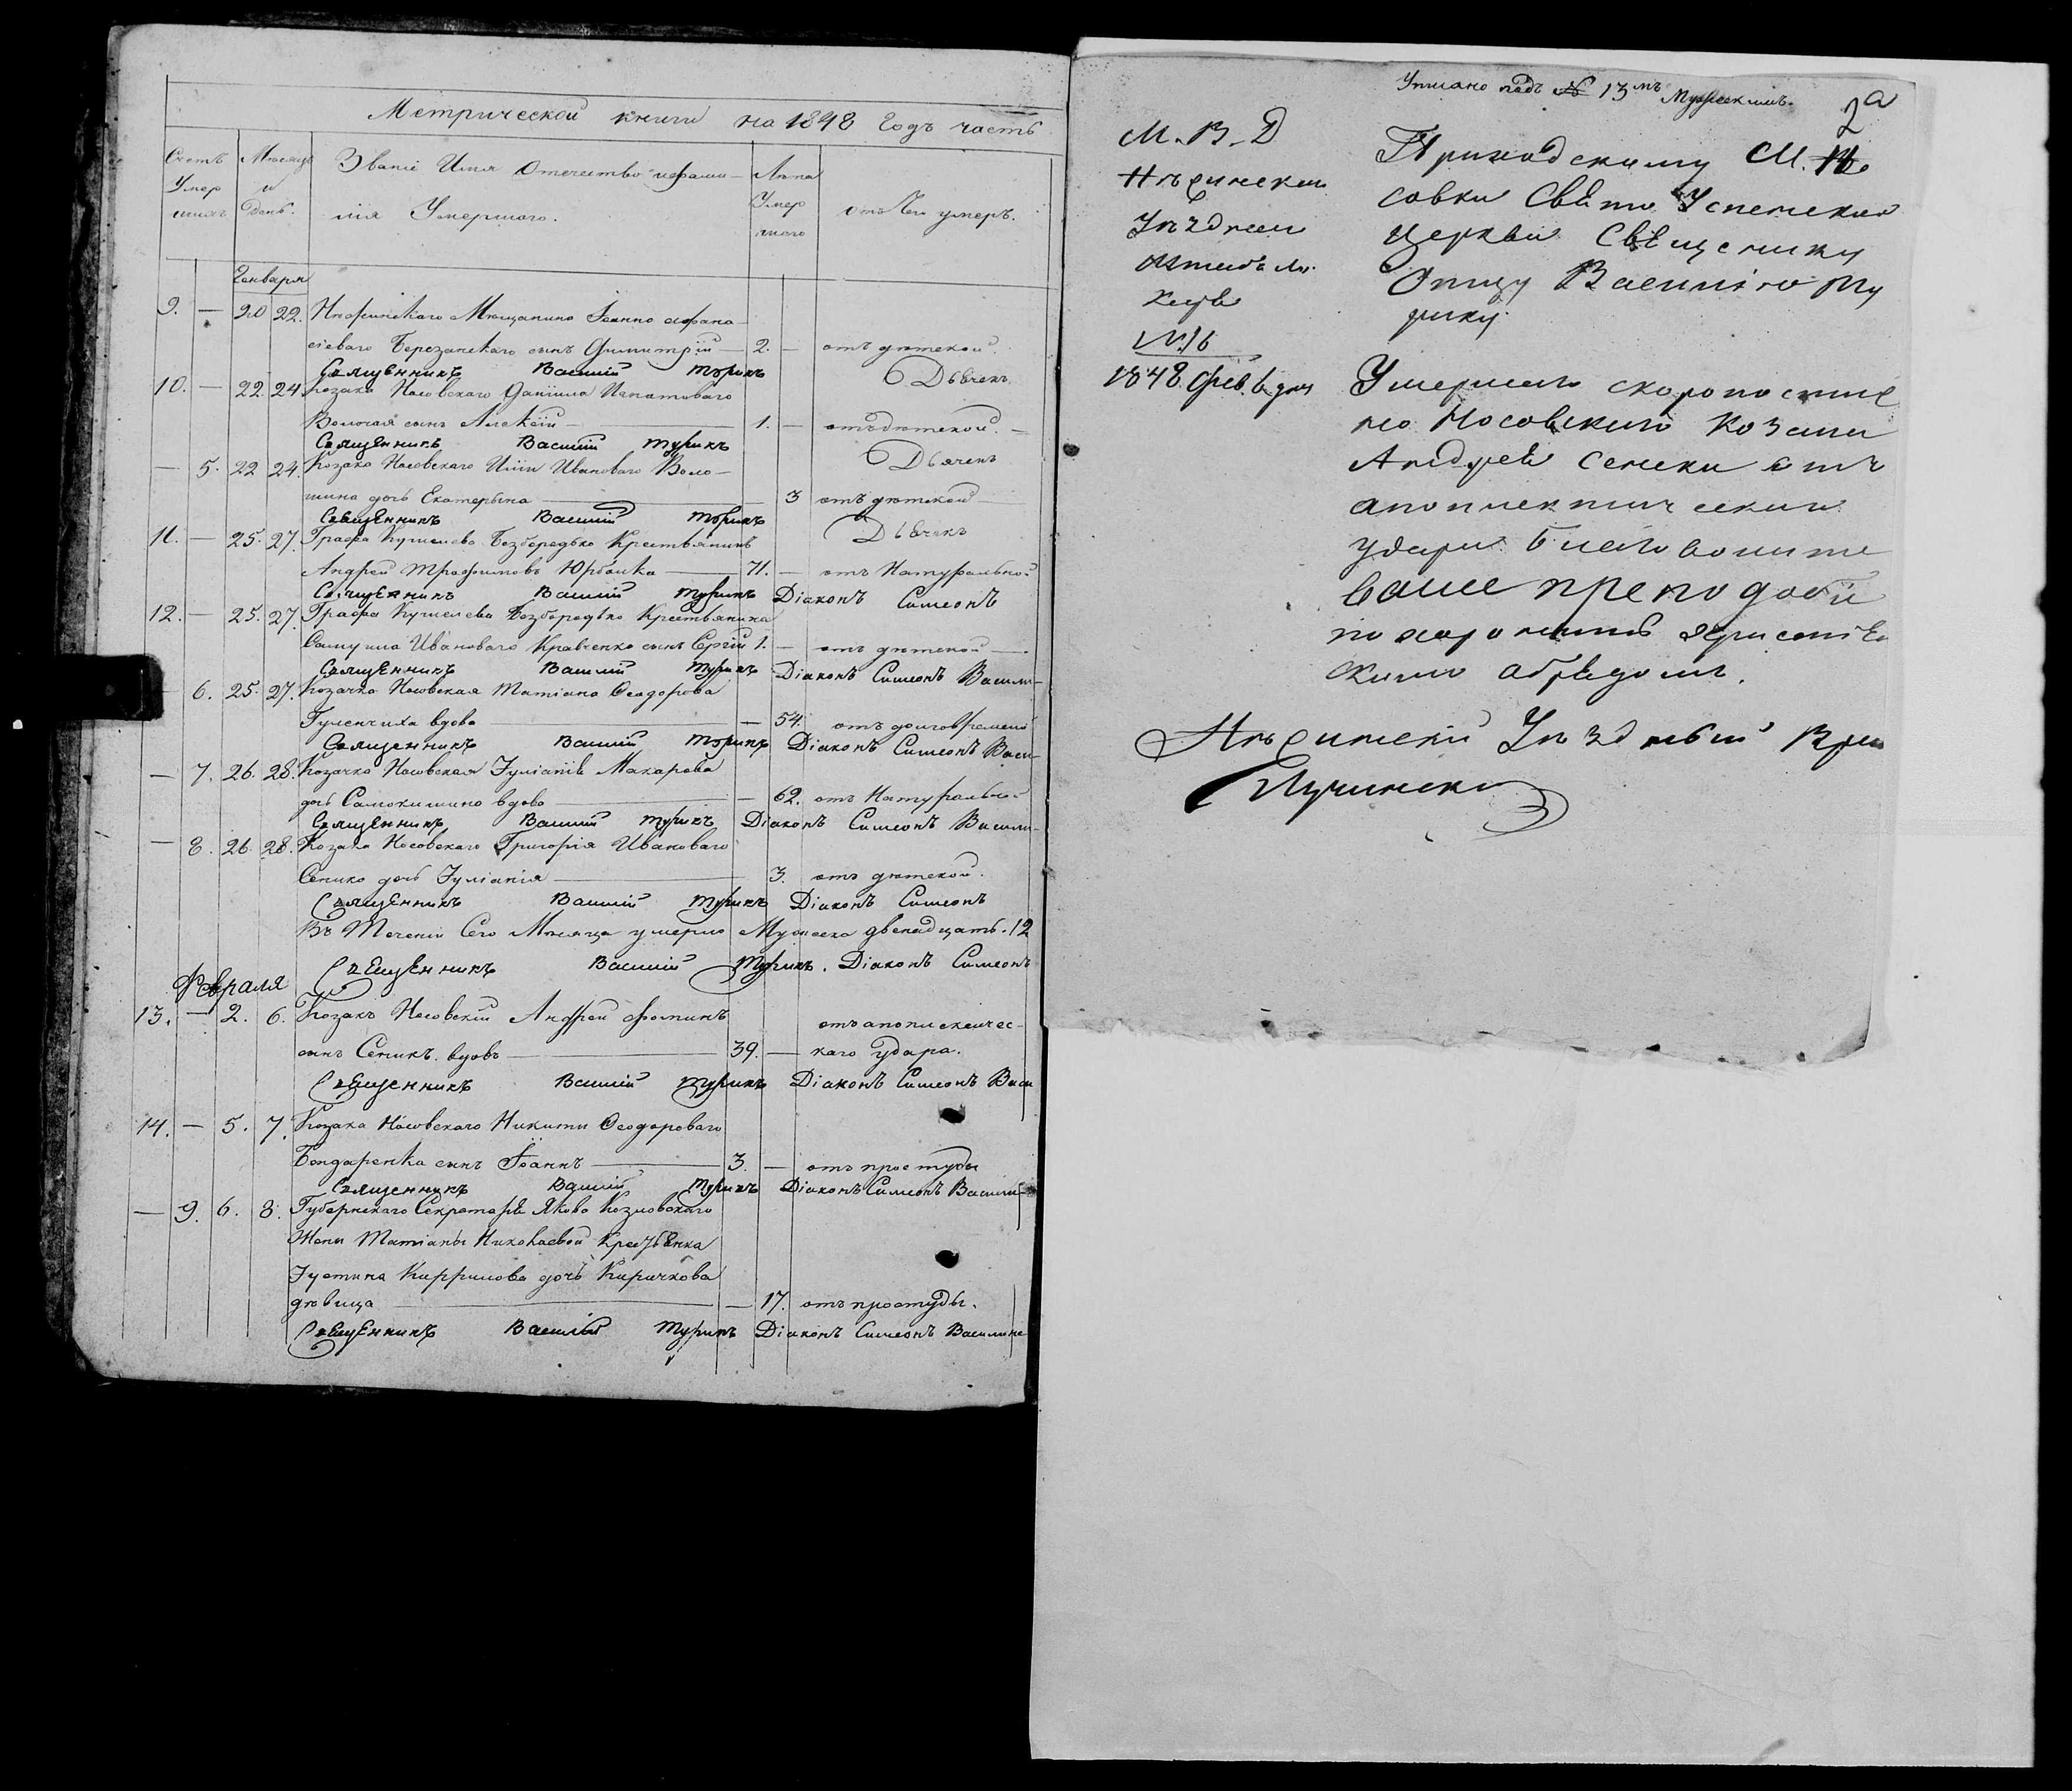 Метрической книги на 1848 годъ часть
Счетъ Умершихъ
Мѣсяцъ и день.
Званіе Имя Отечество и фамилія Умершаго.
Лѣта Умершаго
отъ Чего умеръ.
Генваря
9. — 20 22. Нѣжинскаго Мѣщанина Іоанна Афана-
сіеваго Березанскаго сынъ Димитрій — 2. — отъ дѣтской.
Священникъ Василій Турикъ Дьячекъ
10. — 22. 24. Козака Носовскаго Даніила Игнатоваго
Волочая сынъ Алексій — 1. — отъ дѣтской. —
Священникъ Василій Турикъ Дьячекъ
— 5. 22 24. Козака Носовскаго Иліи Ивановаго Воло-
шина дочь Екатерына — 3 отъ дѣтской
Священникъ Василій Турикъ Дьячекъ
11. — 25. 27. Графа Кушелева Безбородько Крестьянинъ
Андрей Трофимовъ Юрбаика — 71. — отъ Натуральной
Священникъ Василій Турикъ Діаконъ Симеонъ
12. — 25. 27. Графа Кушелева Безбородько Крестьянина
Самуила Иванова­го Кравченко сынъ Сергій 1. — отъ дѣтской —
Священникъ Василій Турикъ Діаконъ Симеонъ Васили-
6. 25. 27. Козачка Носовская Татіана Ѳеодорова
Гуленчиха вдова — 54. отъ долговременной
Священникъ Василій Турикъ Діаконъ Симеонъ Васи-
— 7. 26. 28. Козачка Носовская Іуліанія Макарова
дочь Самокишина вдова — 62. отъ Натуральной
Священникъ Василій Турикъ Діаконъ Симеонъ Васили-
— 8. 26. 28. Козака Носовскаго Григорія Ивановаго
Сенико дочь Іуліанія — 3. отъ дѣтской.
Священникъ Василій Турикъ Діаконъ Симеонъ
Въ Теченіи Сего Мѣсяца умерло Мужеска двенадцать. 12
Священникъ Василій Турикъ. Діаконъ Симеонъ
Февраля
13. — 2. 6. Козакъ Носовскій Андрей Фоминъ отъ апоплекичес-
сынъ Сеникъ. вдовъ — 39. — каго удара.
Священникъ Василій Турикъ Діаконъ Симеонъ Васи
14. — 5. 7. Козака Носовскаго Никиты Ѳеодороваго
Бондаренка сынъ Іоаннъ — 3. — отъ простуды
Священникъ Василій Турикъ Діаконъ Симеонъ Васили-
— 9. 6. 8. Губернскаго Секретаря Якова Козловскаго
Жены Татіаны Николаевой Крестьянка
Іустина Кирриллова дочь Киричкова
дѣвица — 17. отъ простуды.
Священникъ Василій Турикъ Діаконъ Симеонъ Василине
Упнсано подъ № 13мъ Мужескимъ.
2а
М. В. Д
Нѣжинскаго
Уѣзднаго
№ 16
1848 Фев. 6 дня
Приходскому М. Но
совки Свято Успенской
Церкви Священику
Отцу Василію Ту
рику
Умершаго скоропостиж
но Носовскаго Козака
Андрея Сеника отъ
апоплектическаго
удара. Благоволите
ваше преподобіе
похоронить христіан
скимъ обрядомъ.
Нѣжинскій Уѣздный Вра